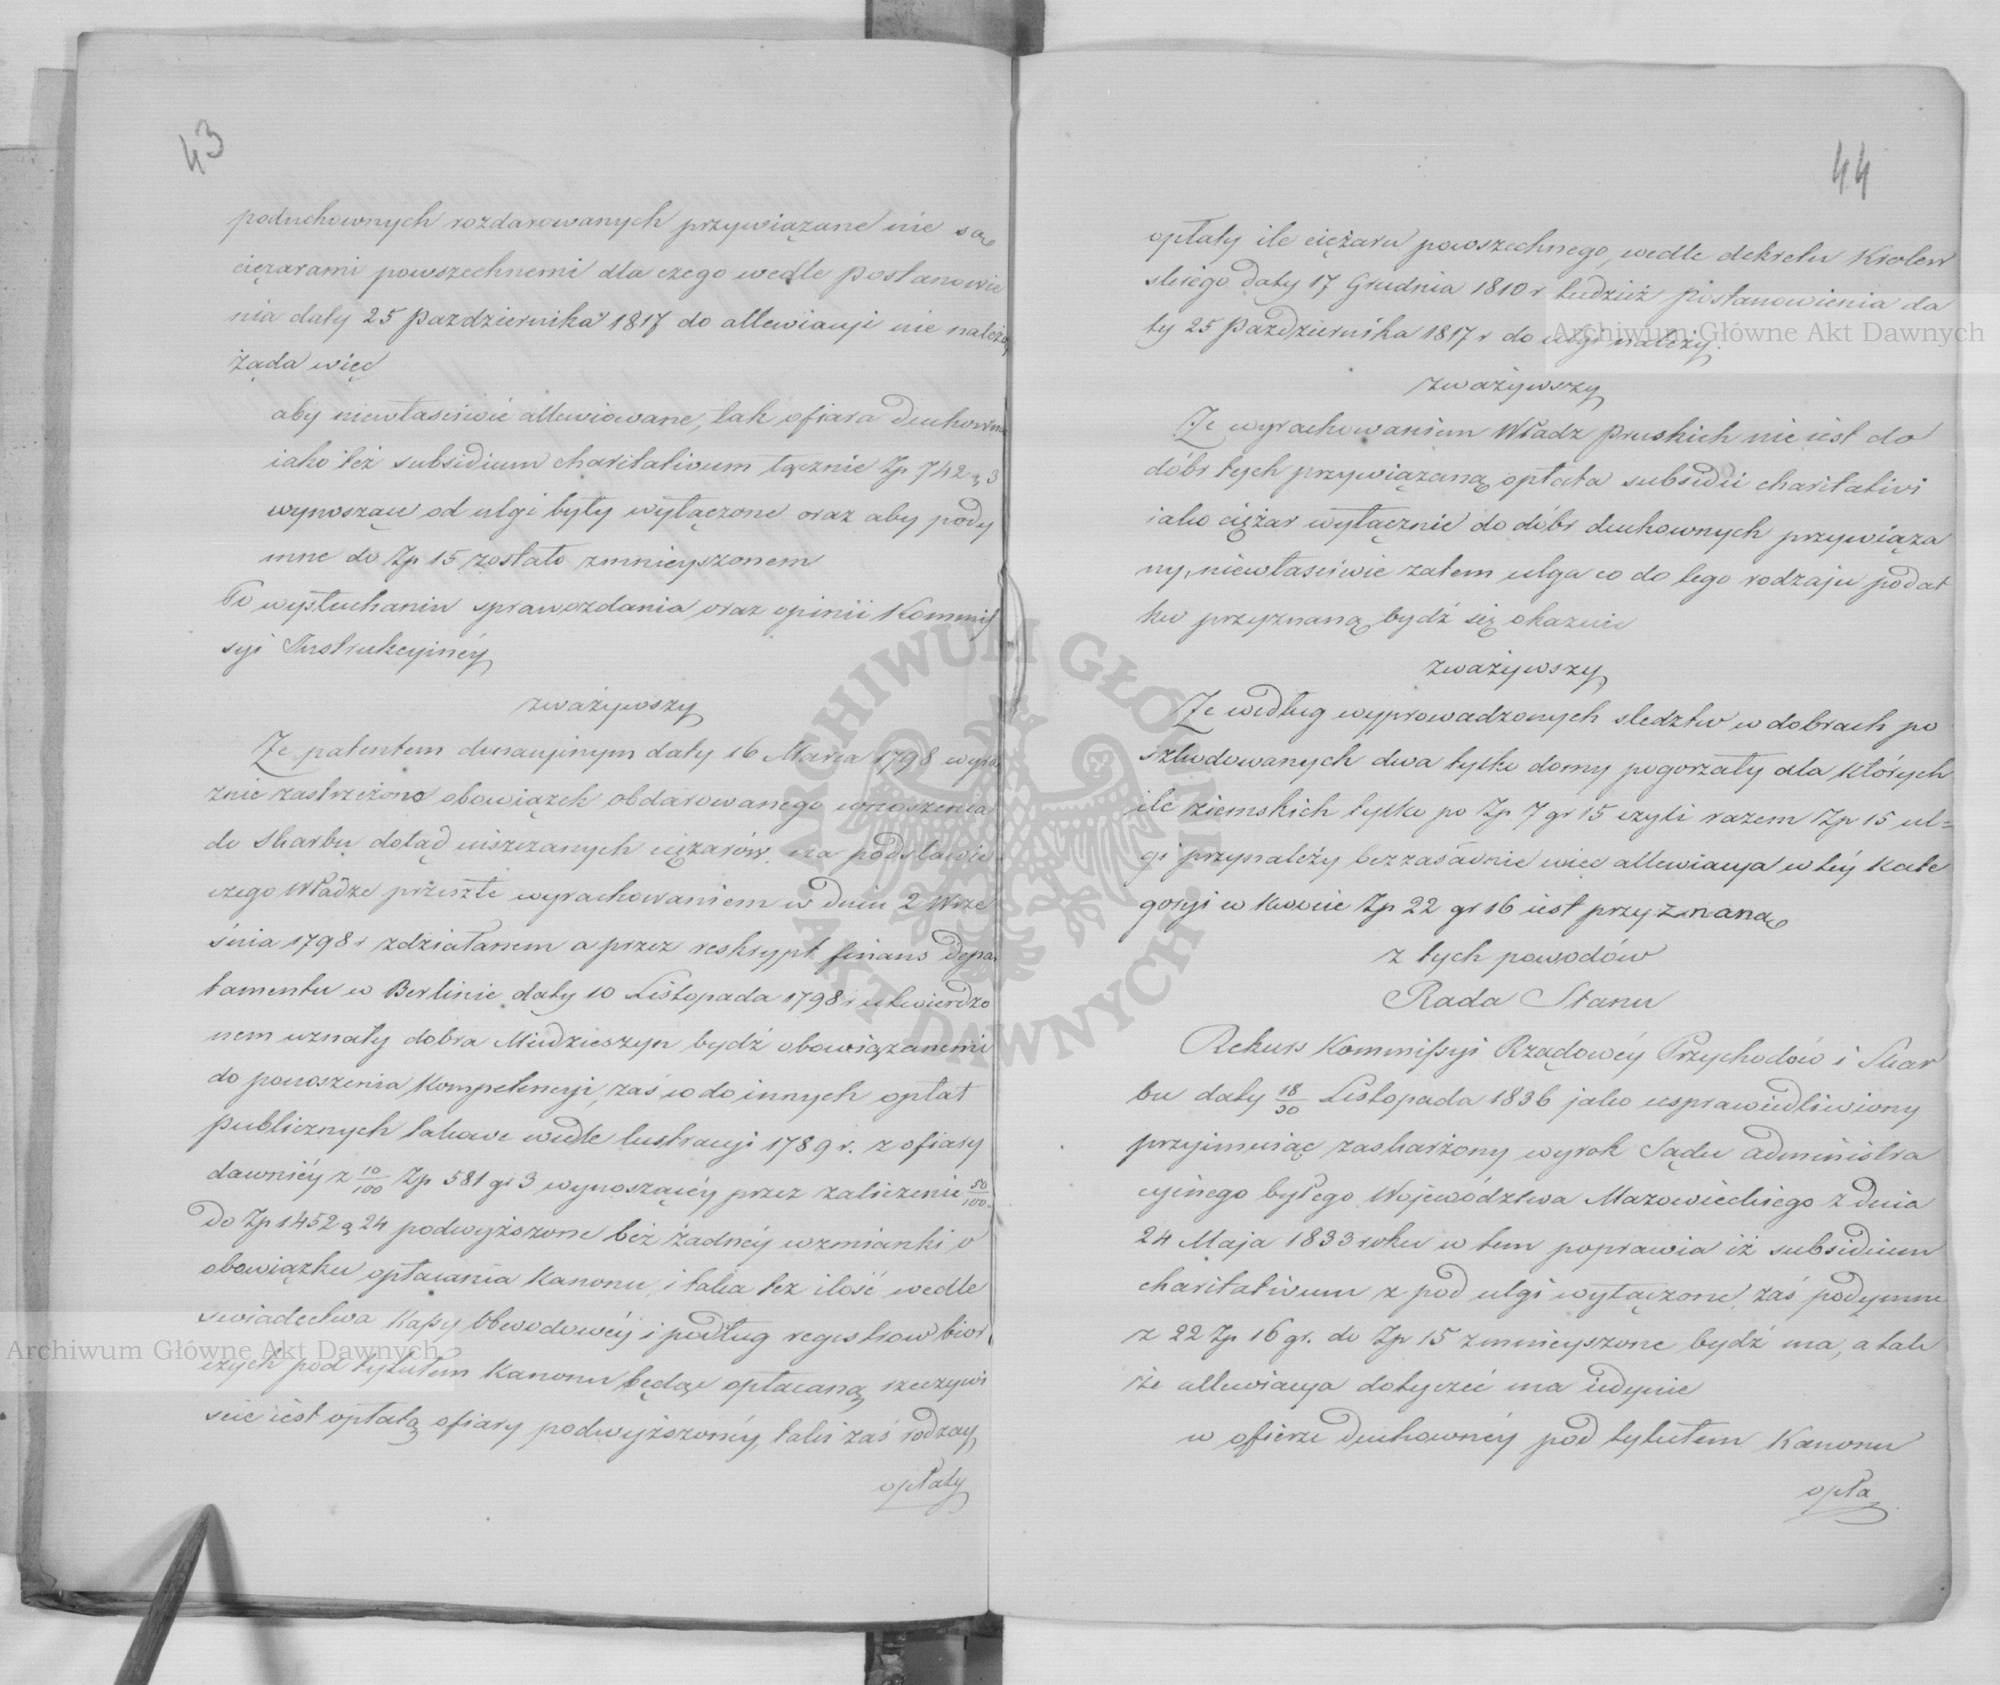 43
poduchownych rozdarowanych przywiązane nie są
ciężarami powszechnemi dla czego wedle postanowie
nia daty 25 Pazdziernika 1817 do allewiacyi nie należą
żąda więc
aby niewłaściwie allewiowane, tak ofiara duchowna
iako też subsidium charitativum łącznie Zp 742 g 3
wynoszące od ulgi były wyłączone oraz aby pody
mne do Zp 15 zostało zmnieyszonem
Po wysłuchaniu sprawozdania oraz opinii Kommis
syi Instrukcyinéy
zważywszy
Ze patentem donacyinym daty 16 Marca 1798 wyra
znie zastrzeżono obowiązek obdarowanego wnoszenia
do Skarbu dotąd uiszczanych ciężarów, na podstawie
czego Władze przeszłe wyrachowaniem w dniu 2 Wrze
śnia 1798 r zdziałanem a przez reskrypt finans Depar
tamentu w Berlinie daty 10 Listopada 1798 r utwierdzo
nem uznały dobra Miedzieszyn bydź obowiązanemi
do ponoszenia Kompetencyi, zaś co do innych opłat
publicznych takowe wedle lustracyi 1789 r. z ofiary
dawniéy z 10/100 Zp 581 gr 3 wynoszącéy przez zaliczenie 50/100
do Zp 1452 g 24 podwyższone bez żadnéy wzmianki o
obowiązku opłacania Kanonu, i taka też ilość wedle
swiadectwa Kassy Obwodowéy i podług regestrow bior
czych pod tytułem Kanonu będąc opłacaną, rzeczywi
scie iest opłatą ofiary podwyższonéy, taki zaś rodzay
opłaty
44
opłaty ile ciężaru powszechnego wedle dekretu Krolew
skiego daty 17 Grudnia 1810 r tudzież postanowienia da
ty 25 Pazdziernika 1817 r do ulgi należy.
zważywszy
Ze wyrachowaniem Władz Pruskich nie iest do
dóbr tych przywiązaną opłata subsidii charitativi
iako ciężar wyłącznie do dóbr duchownych przywiąza
ny, niewłaściwie zatem ulga co do tego rodzaju podat
ku przyznaną bydź się okazuie
zważywszy
Ze według wyprowadzonych sledztw w dobrach po
szkodowanych dwa tylko domy pogorzały dla których
ile ziemskich tylko po Zp 7 gr 15 czyli razem Zp 15 ul=
gi przynależy bezzasadnie więc allewiacya w téy Kate
goryi w kwocie Zp 22 gr 16 iest przyznaną
z tych powodów
Rada Stanu
Rekurs Kommissyi Rządowéy Przychodów i Skar
bu daty 18/30 Listopada 1836 jako usprawiedliwiony
przyimuiąc zaskarżony wyrok Sądu administra
cyinego byłego Województwa Mazowieckiego z dnia
24 Maja 1833 roku w tem poprawia iż subsidium
charitativum z pod ulgi wyłączone, zaś podymne
z 22 Zp 16 gr. do Zp 15 zmnieyszone bydź ma, a tak
że allewiacya dotyczeć ma iedynie
w ofierze duchownéy pod tytułem Kanonu
opła
Archiwum Główne Akt Dawnych
Archiwum Główne Akt Dawnych
ARCHIWUM GŁÓWNE AKT DAWNYCH